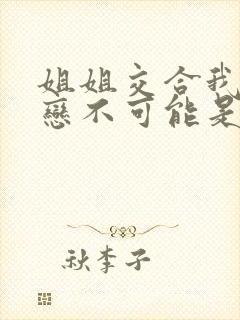 姐姐交合我
戀不可能是
秋李子